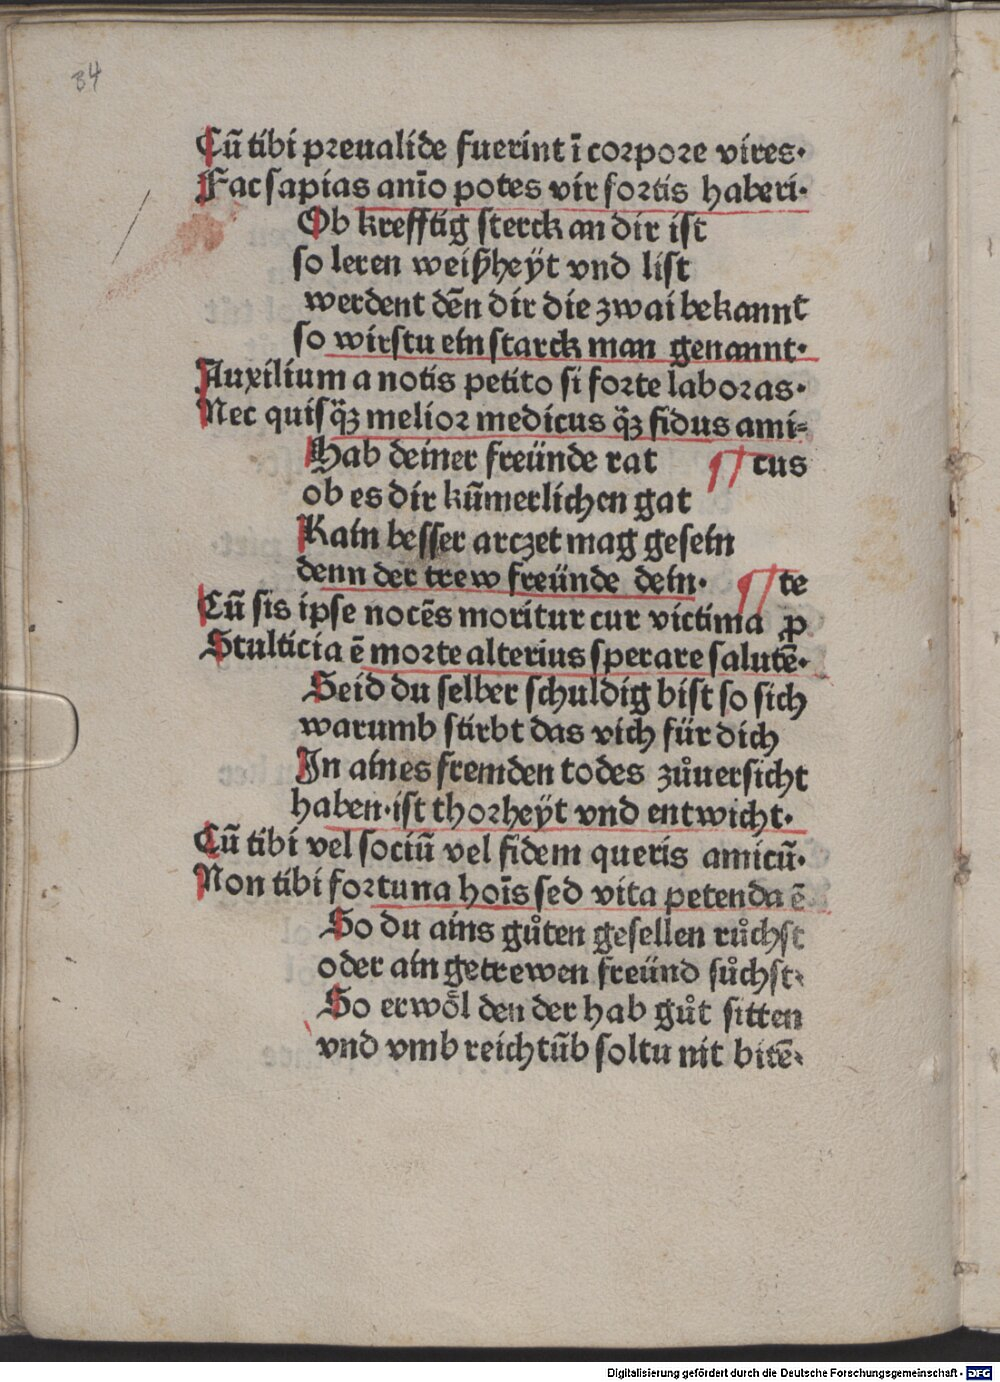 34
Cū tibi preualide fuerint ī corpore vires·
Fac sapias anīo potes vir fortis haberi·
Ob krefftig sterck an dir ist
so leren weiſzheÿt vnd list
werdent dēn dir die zwai bekannt
so wirstu ein starck man genannt·
Auxilium a notis petito si forte laboras·
Nec quisq̄ꝫ melior medicus q̄ꝫ fidus ami-
Hab deiner freünde rat ¶ cus
ob es dir kūmerlichen gat
Kain besser arczet mag gesein
denn der trew freünde dein· ¶ te
Cū sis ipse nocēs moritur cur victima ꝓ
Stulticia ē morte alterius sperare salutē·
Seid du selber schuldig bist so sich
warumb stirbt das vich für dich
In aines fremden todes zůuersicht
haben·ist thorheÿt vnd entwicht·
Cū tibi vel sociū vel fidem queris amicū·
Non tibi fortuna hoīs sed vita petenda ē
So du ains gůten gesellen růchst
oder ain getrewen freünd sůchst·
So erwöl den der hab gůt sitten
vnd vmb reichtūb soltu nit bitē·
Digitalisierung gefördert durch die Deutsche Forschungsgemeinschaft - DFG